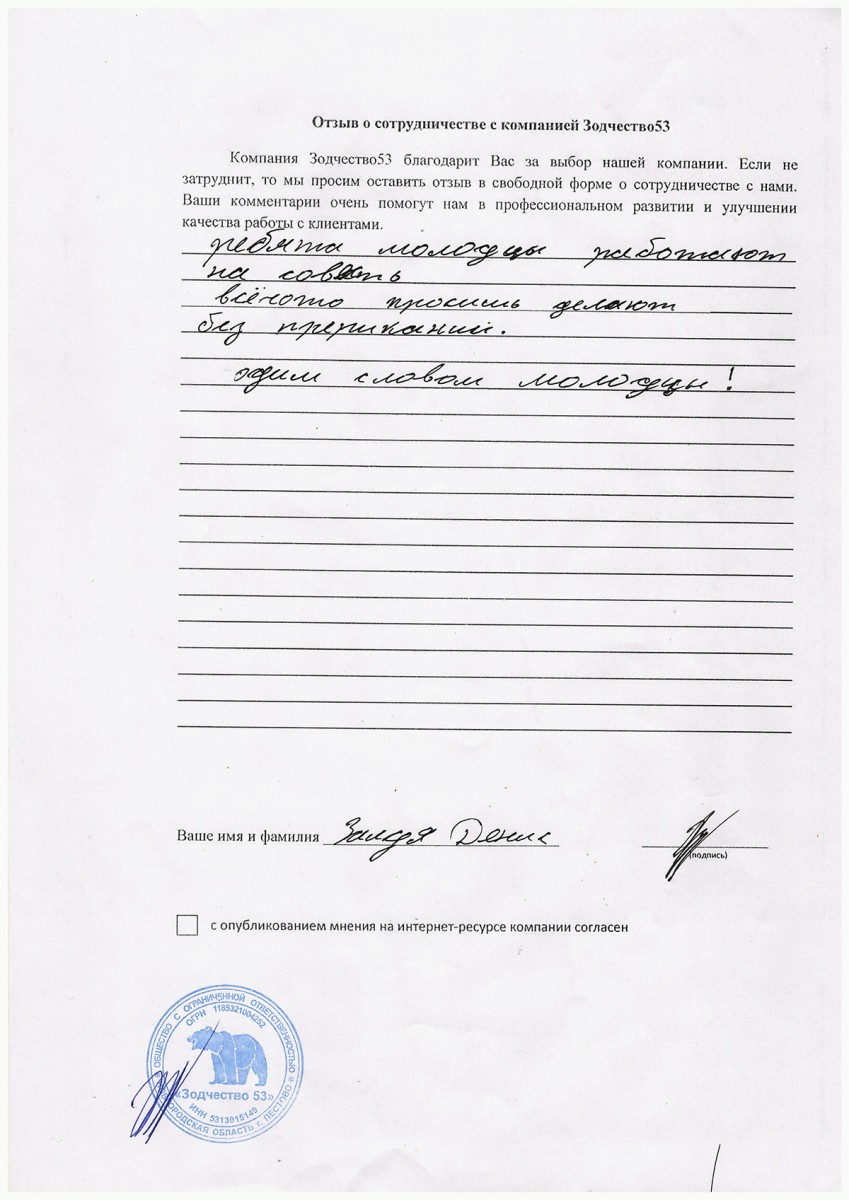 Отзыв о сотрудничестве с компанией Зодчество53
Компания Зодчество53 благодарит Вас за выбор нашей компании. Если не
затруднит, то мы просим оставить отзыв в свободной форме о сотрудничестве с нами.
Ваши комментарии очень помогут нам в профессиональном развитии и улучшении
качества работы с клиентами.
ребята молодцы работают
на совесть
всё что просишь делают
без пререканий.
одим словом молодцы!
Ваше имя и фамилия Денис
(подпись)
с опубликованием мнения на интернет-ресурсе компании согласен
ОБЩЕСТВО С ОГРАНИЧЕННОЙ ОТВЕТСТВЕННОСТЬЮ
ОГРН 1185321004252
«Зодчество 53»
ИНН 5313015149
НОВГОРОДСКАЯ ОБЛАСТЬ г. ПЕСТОВО